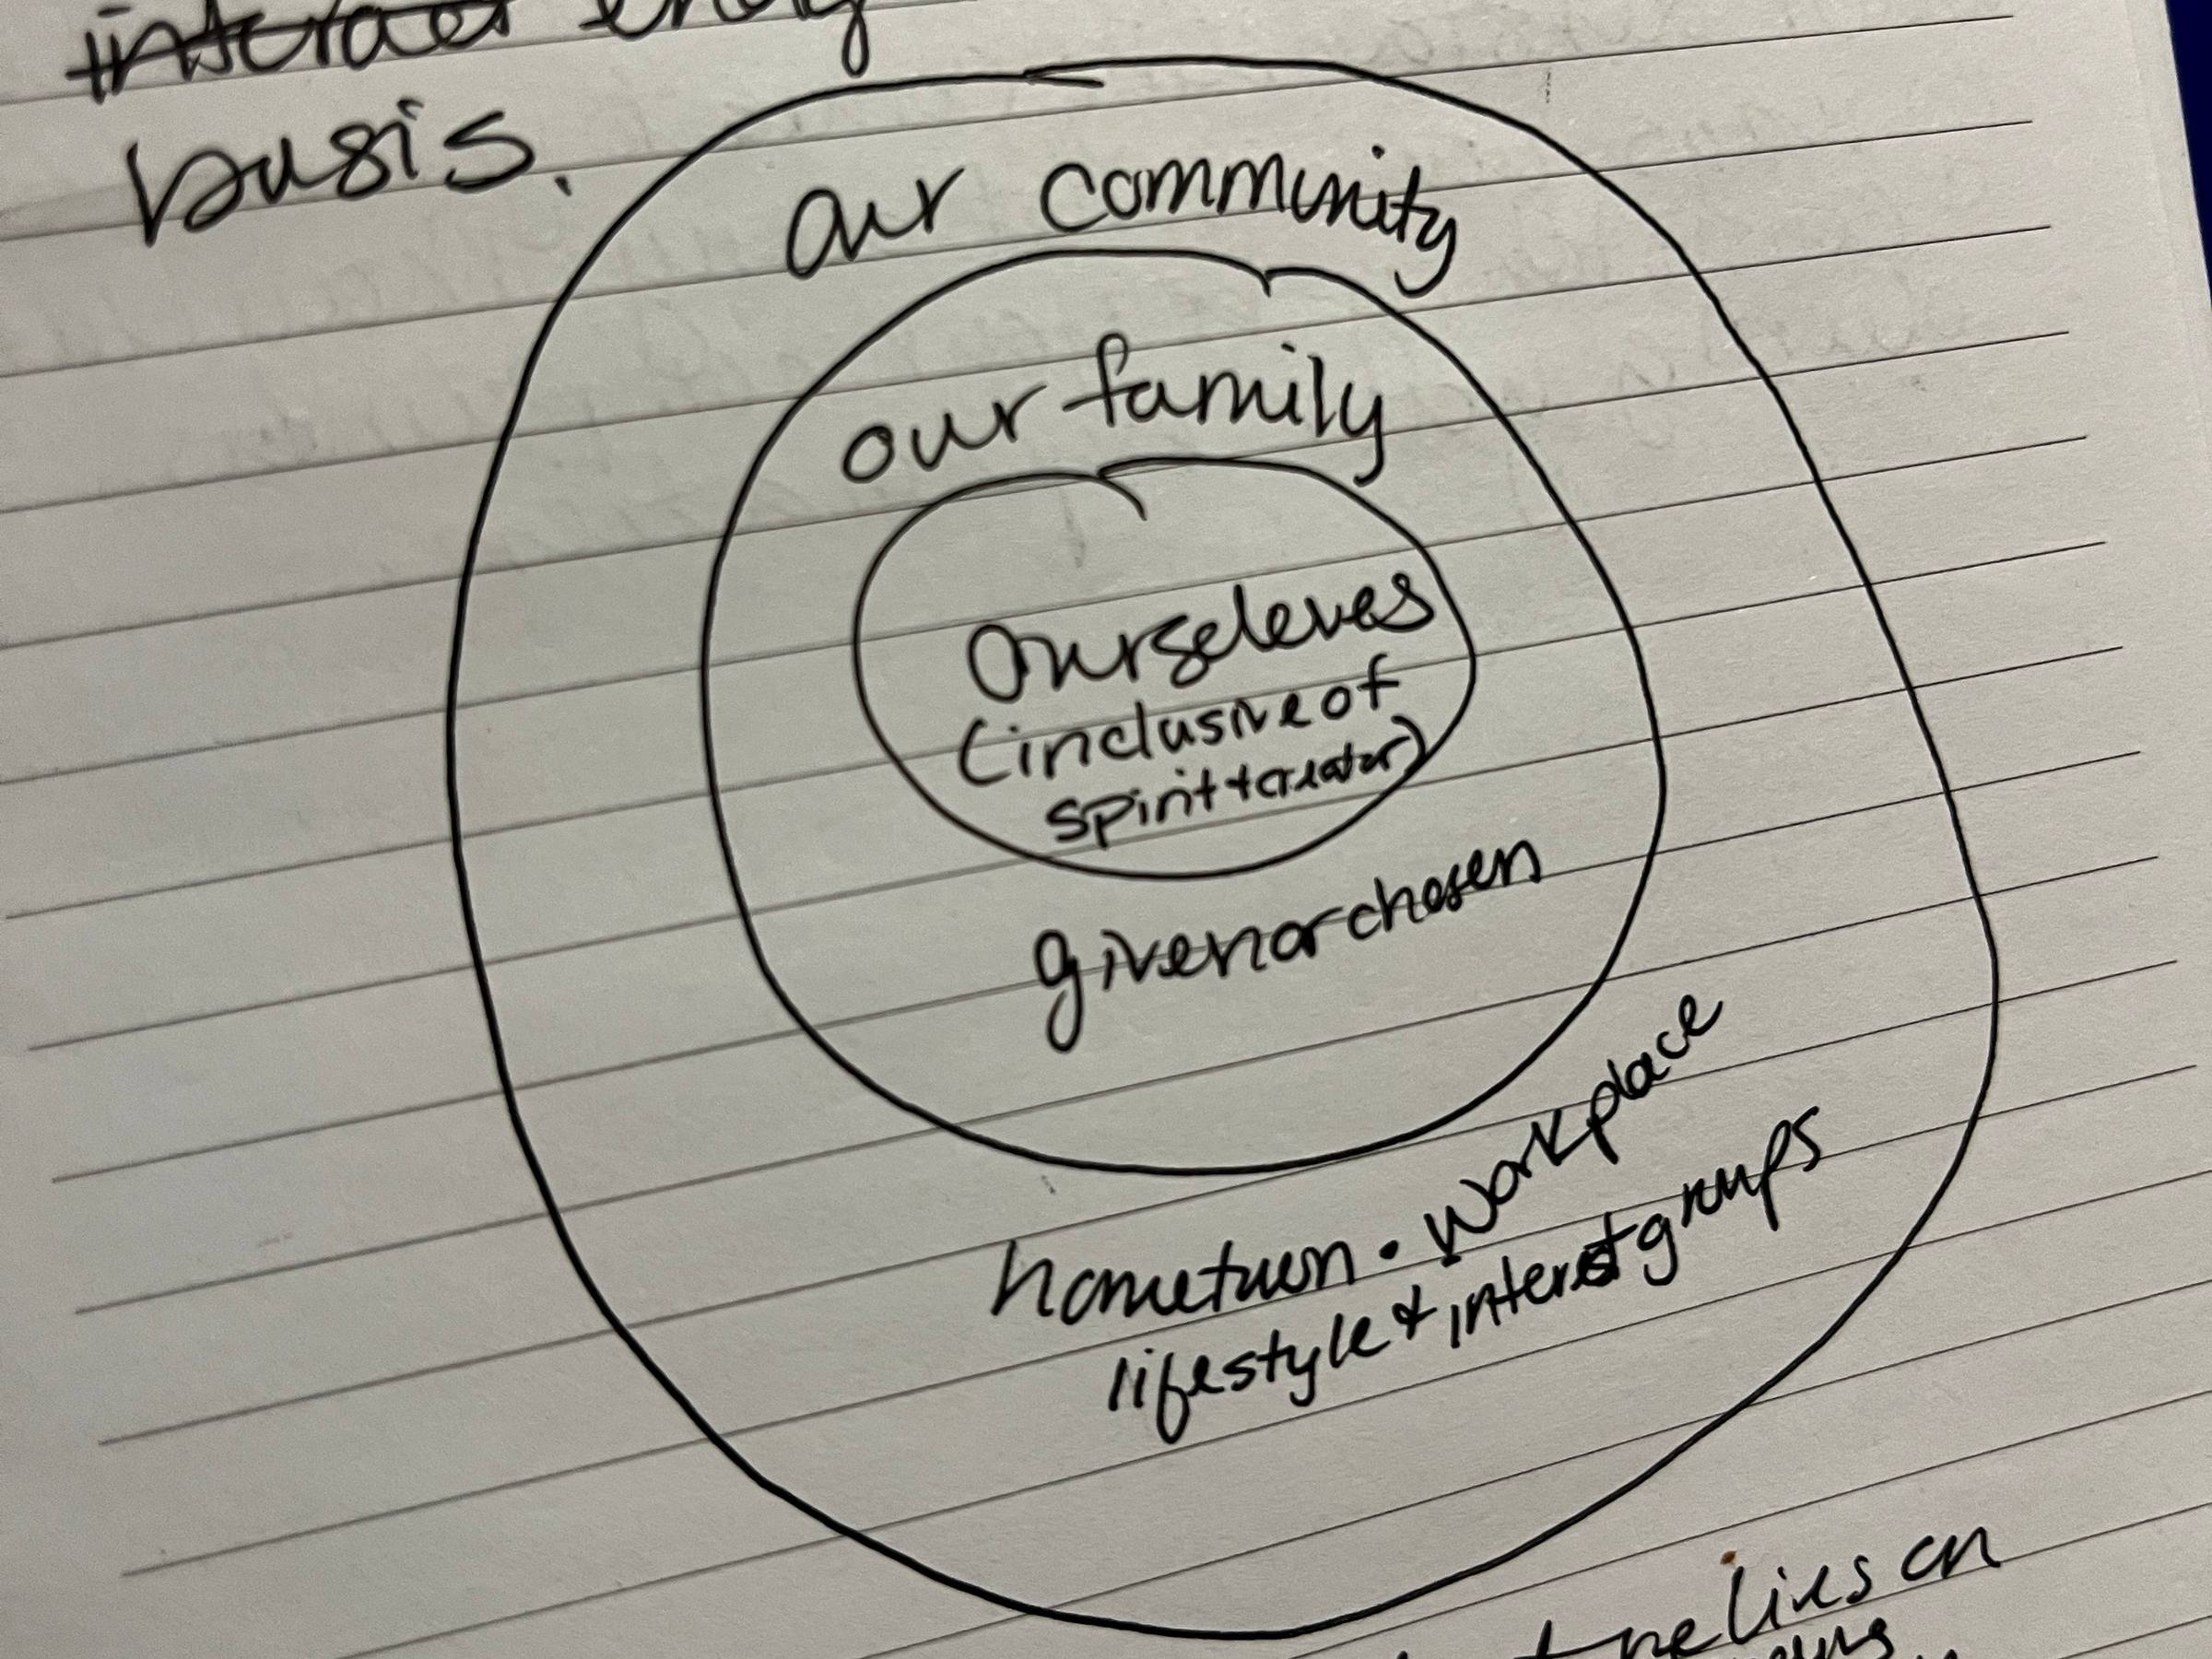 interact energy
basis.
our community
our family
Ourseleves
(inclusive of
spirit + creator)
given or chosen
hometown • workplace
lifestyle & interest groups
lives on